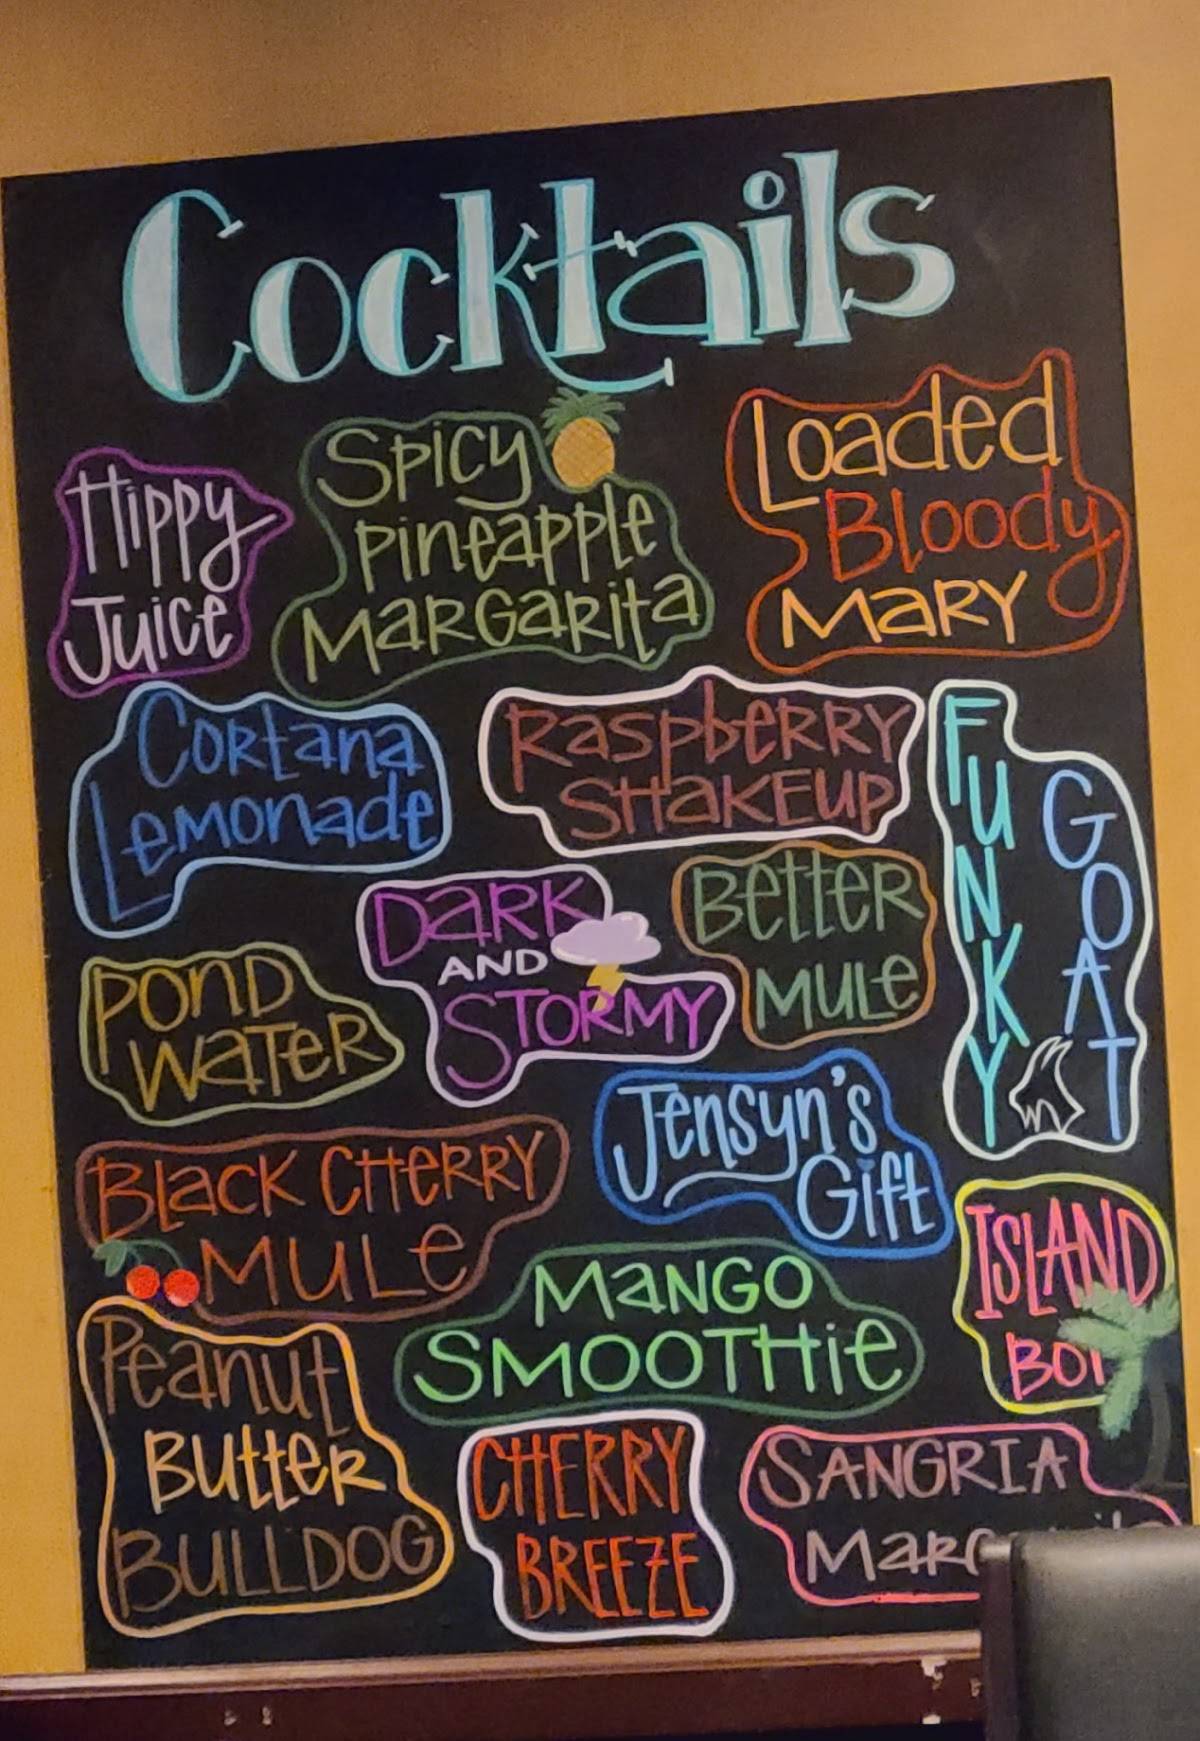 Cocktails
Hippy
Juice
Spicy
Pineapple
Margarita
Loaded
Bloody
Mary
Cortana
Lemonade
Raspberry
Shakeup
FUNKY
GOAT
Dark
AND
STORMY
Better
Mule
Pond
Water
Jensyn's
Gift
Black Cherry
Mule
Mango
Smoothie
ISLAND
BOI
Peanut
Butter
BULLDOG
CHERRY
BREEZE
SANGRIA